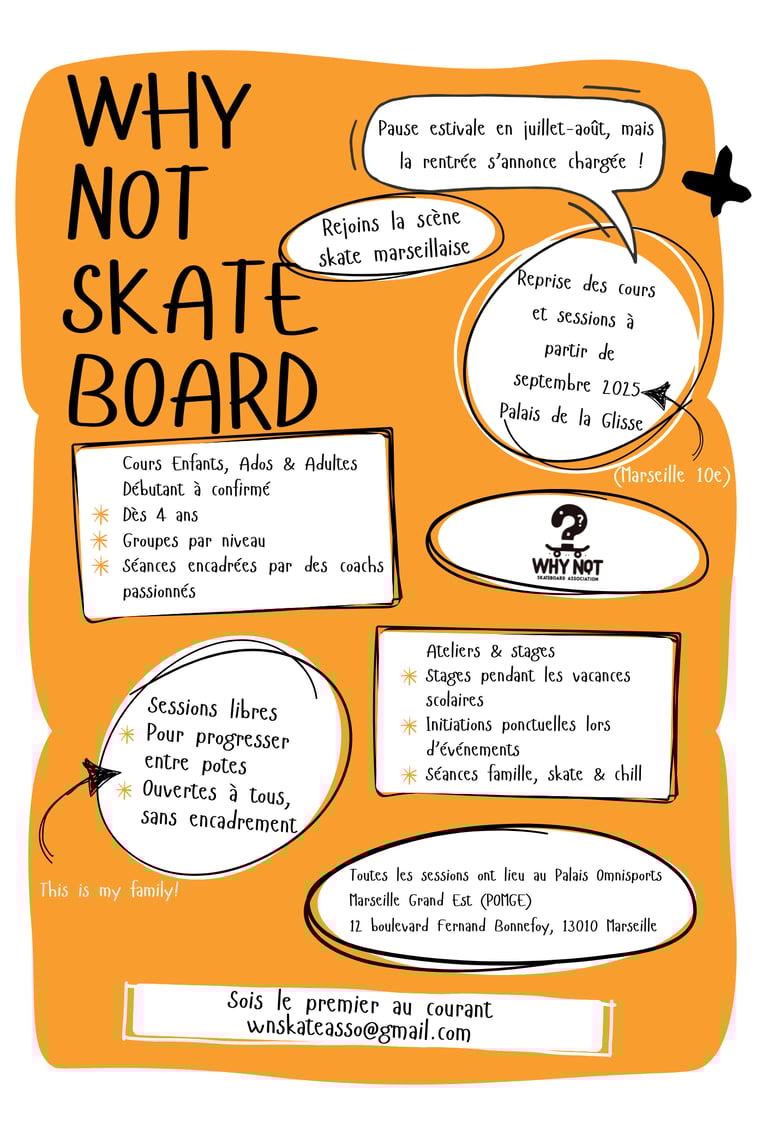 WHY
NOT
SKATE
BOARD
Pause estivale en juillet-août, mais
la rentrée s'annonce chargée !
Rejoins la scène
skate marseillaise
Reprise des cours
et sessions à
partir de
septembre 2025
Palais de la Glisse
(Marseille 10e)
Cours Enfants, Ados & Adultes
Débutant à confirmé
Dès 4 ans
Groupes par niveau
Séances encadrées par des coachs
passionnés
?
?
WHY NOT
SKATEBOARD ASSOCIATION
Ateliers & stages
Stages pendant les vacances
scolaires
Initiations ponctuelles lors
d'événements
Séances famille, skate & chill
Sessions libres
Pour progresser
entre potes
Ouvertes à tous,
sans encadrement
This is my family!
Toutes les sessions ont lieu au Palais Omnisports
Marseille Grand Est (POMGE)
12 boulevard Fernand Bonnefoy, 13010 Marseille
Sois le premier au courant
wnskateasso@gmail.com